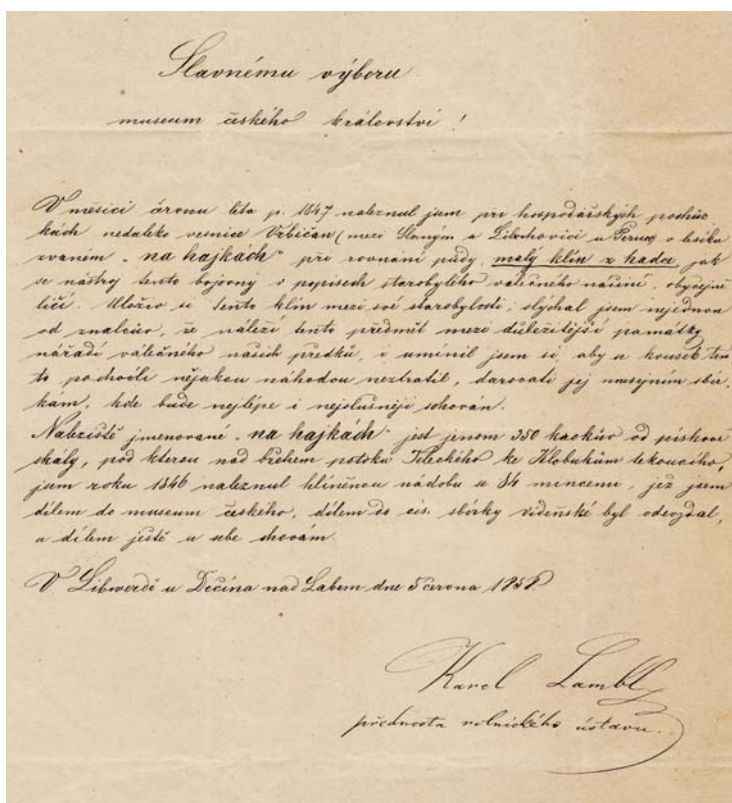 Slavnému výboru
museum českého království!
V měsíci červnu léta p. 1847 naleznul jsem při hospodářských pochůz
kách nedaleko vesnice Vrbičan (mezi Slaným a Libochovici u Peruce) v lesíku
zvaném „na hajkách“ při rovnání půdy, malý klín z hadce, jak
se nástroj tento bojovný v popisech starobylého válečného náčiní, obyčejně
líčí. Uloživ si tento klín mezi své starobylosti; slýchal jsem nejednou
od znalcův, že náleží tento předmět mezi důležitější památky
nářadí válečného našich předků, i umínil jsem si, aby se kousek ten
to po chvíli nějakou náhodou neztratil, darovati jej musejním sbír
kám, kde bude nejlépe i nejslušněji schován.
Naleziště jmenované „na hajkách“ jest jenom 350 krokův od pískové
skály, pod kterou nad břehem potoku Teleckého ke Klobukům tekoucího,
jsem roku 1846 naleznul hliněnou nádobu s 84 mincemi, jež jsem
dílem do museum českého, dílem do cís. sbírky vídeňské byl odevzdal,
a dílem ještě u sebe chovám.
V Libwerdě u Děčína nad Labem dne 5 června
Karel Lambl
přednosta rolnického ústavu.